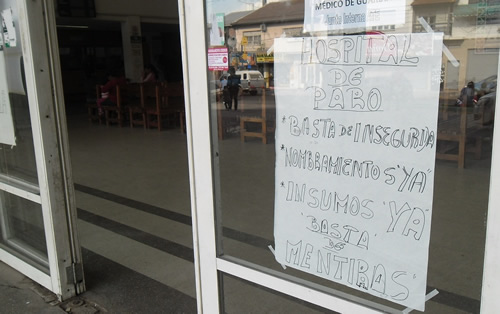 MÉDICO DE GUARDIA
HOSPITAL
DE
PARO
*BASTA DE INSEGURIDA
*NOMBRAMIENTOS "YA"
*INSUMOS "YA"
"BASTA
DE
MENTIRAS"